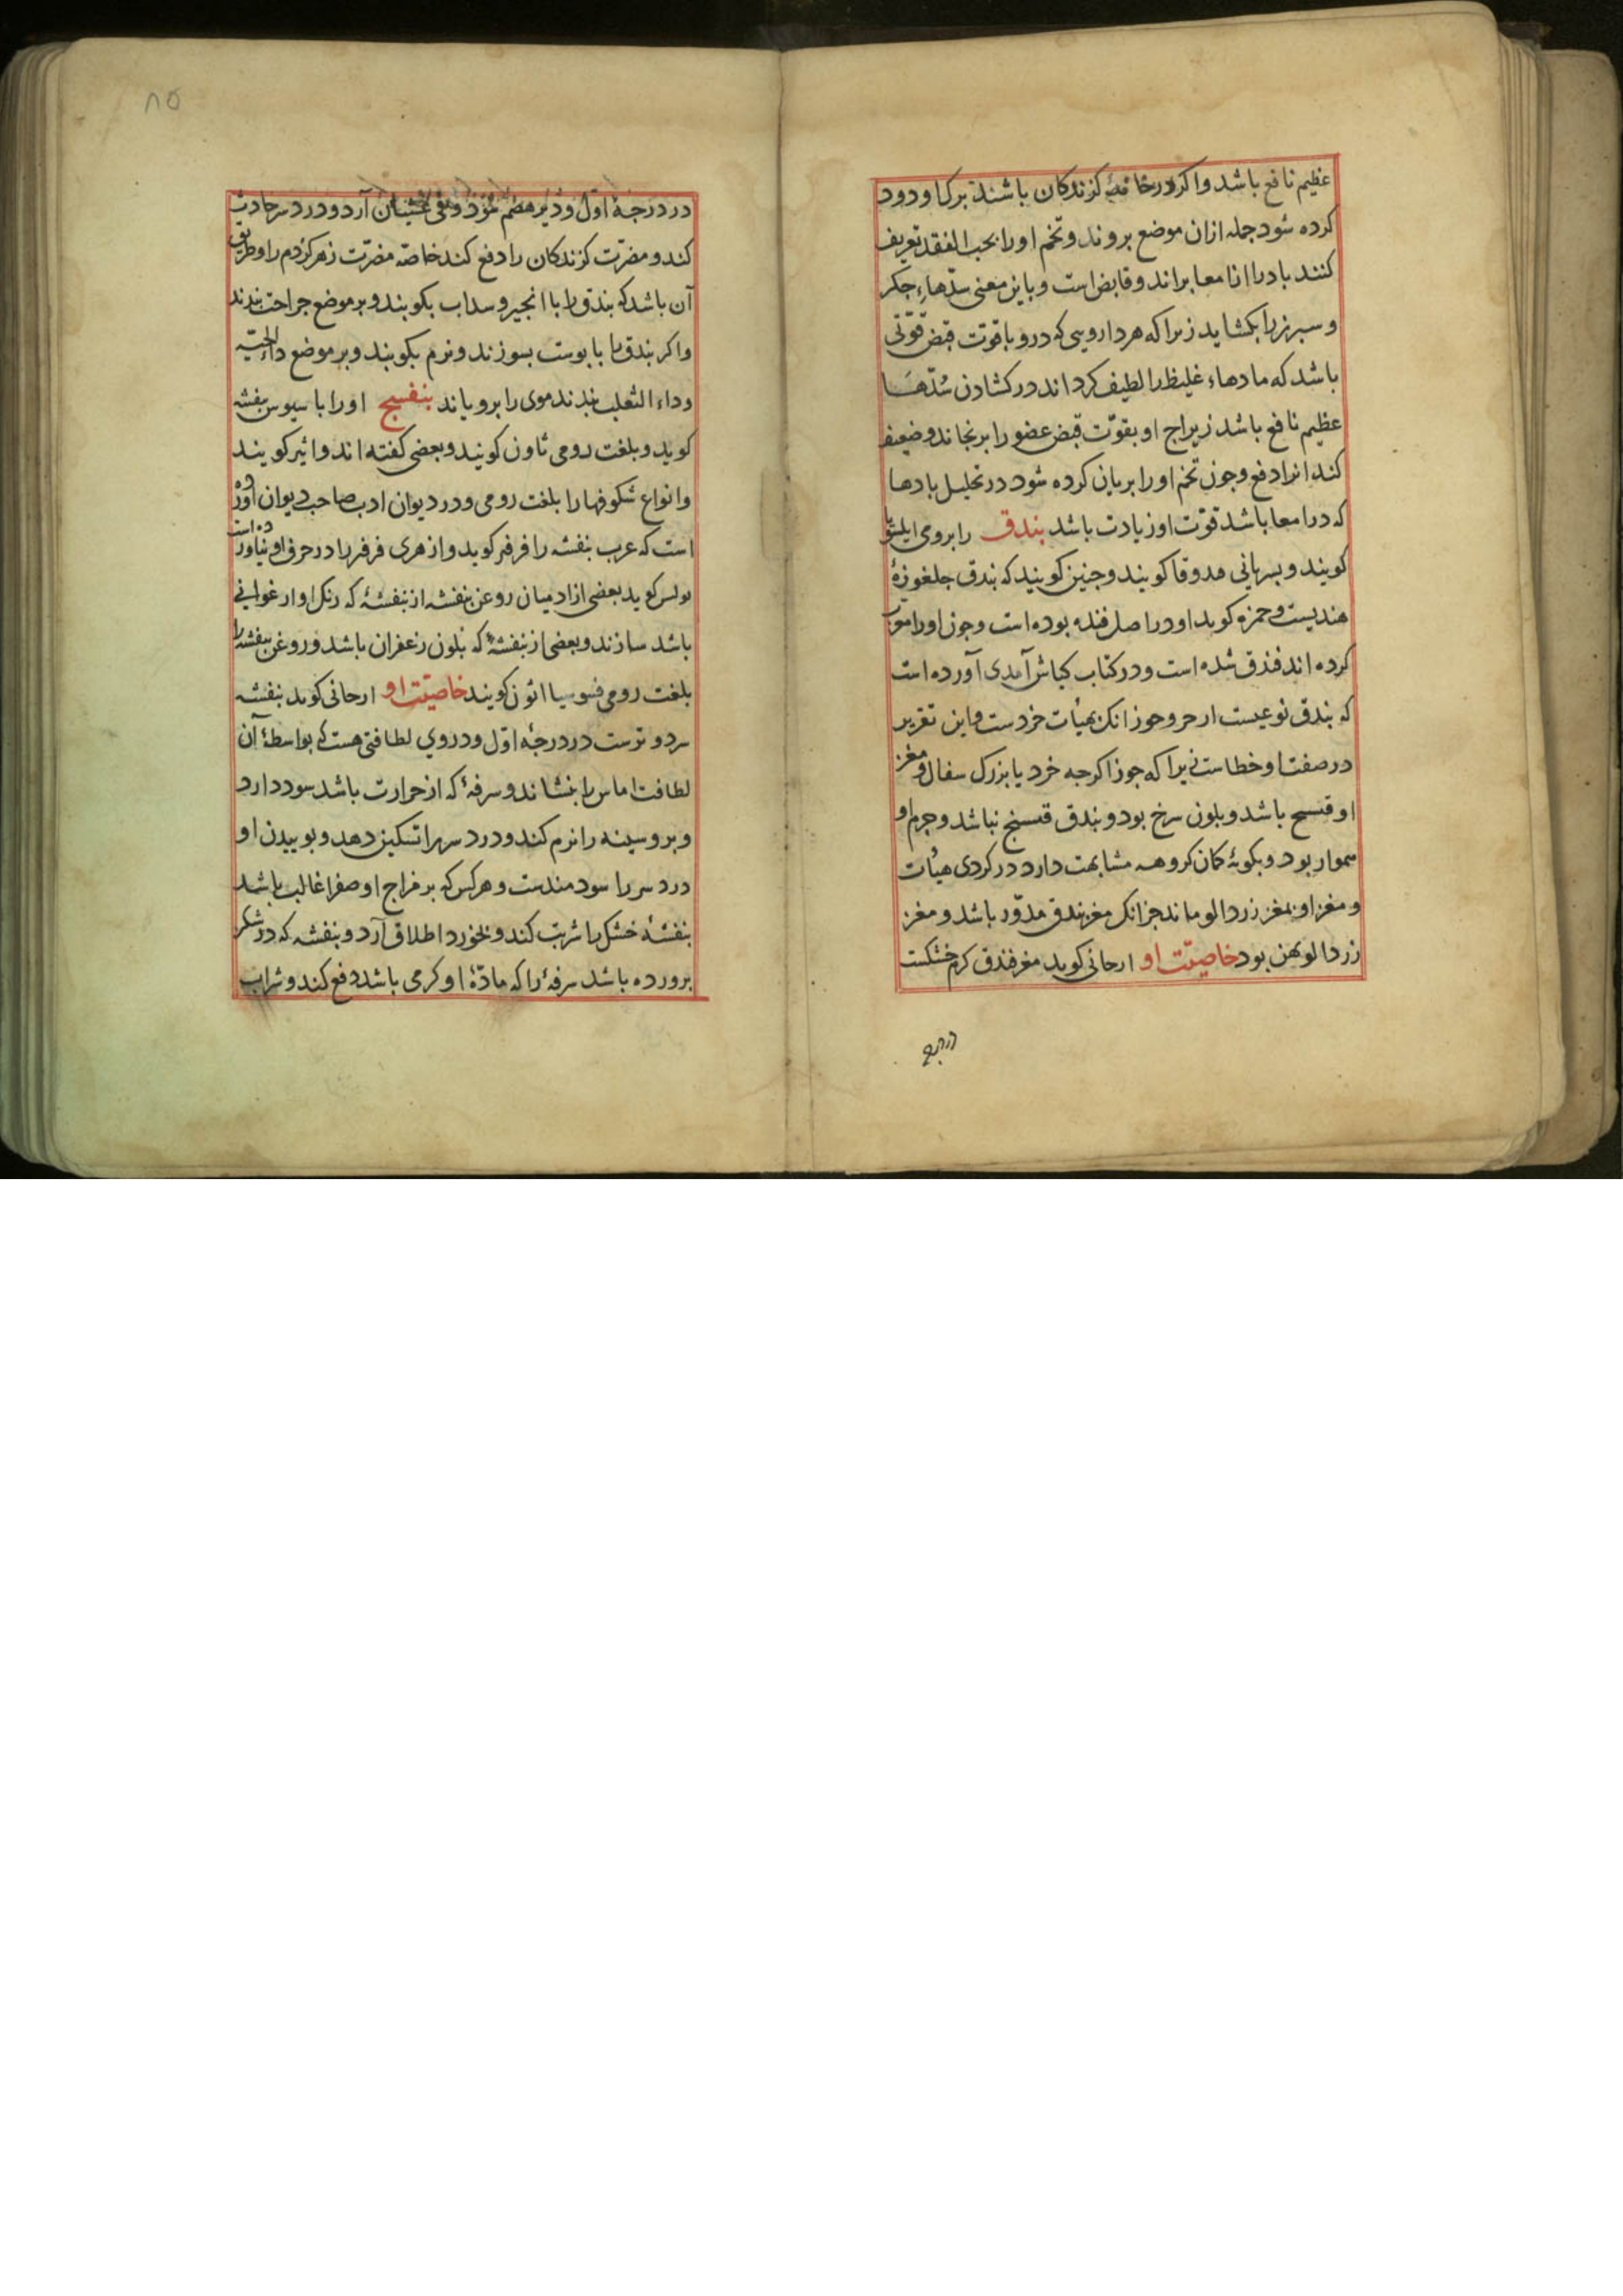 عظیم نافع باشد واکر در خانهٔ کزندکان باشند ببرکها ودود
کرده شود جمله ازان موضع بروند وتخم اورا بحب الفقد تعریف
کنند بادرا از امعا براند وقابض است وباین معنی سدهاء جکر
وسبرز را بکشاید زیرا که هر دارویی که درو با قوت قبض قوتی
باشد که مادهاء غلیظ را لطیف کرداند در کشادن سدها
عظیم نافع باشد زیراچ او بقوت قبض عضو را برنجاند وضعیف
کند انرا دفع وجون تخم اورا بریان کرده شود در تحلیل بادها
که در امعا باشد قوت او زیادت باشد بندق را برومی
کویند وبسریانی فدوقا کویند وجنین کویند که بندق جلغوزهٔ
هندیست وحمزه کوید او در اصل فندبه بوده است وجون اورا معرب
کرده اند فندق شده است ودر کتاب کناش آمدی آورده است
که بندق نوعیست از جوز وجوز انک بهیأت خردست واین تقریر
در صفت او خطاست زیرا که جوز اکرجه خرد یا بزرک سفال ومغز
او باشد وبلون سرخ بود وبندق نباشد وجرم او
هموار بود وبکونهٔ کمان کروهه مشابهت دارد در کردی هیأت
ومغز او بمغز زردالو ماند جز انک مغز بندق مدور باشد ومغز
زردالو پهن بود خاصیت او ارجانی کوید مغز فندق کرم خشکست
درجه
۸۵
در درجهٔ اول ودیر هضم شود وقی غثیان آرد ودرد سر حادث
کند ومضرت کزندکان را دفع کند خاصه مضرت زهر کژدم را وطریق
آن باشد که بندق را با انجیر وسداب بکوبند وبر موضع جراحت بندند
واکر بندق را با پوست بسوزند ونرم بکوبند وبر موضع داء الحیه
وداء الثعلب بندند موی را برویاند بنفسج اورا باسیوس بنفشه
کوید وبلغت رومی ثاون کویند وبعضی کفته اند وائیر کویند
وانواع شکوفها را بلغت رومی ودر دیوان ادب صاحب دیوان آورده
است که عرب بنفشه را فرفیر کوید وازهری فرفیر را در حرف او نیاورده است
بولس کوید بعضی از ادمیان روغن بنفشه از بنفشهٔ که رنک او ارغوانی
باشد سازند وبعضی از بنفشهٔ که بلون زعفران باشد وروغن بنفشه را
بلغت رومی کویند خاصیت او ارجانی کوید بنفشه
سرد وترست در درجهٔ اول ودروی لطافتی هست که بواسطهٔ آن
لطافت اماس را بنشاند وسرفهٔ که از حرارت باشد سود دارد
وبر وسینه را نرم کند ودرد سر را تسکین دهد وبوییدن او
درد سر را سودمندست وهر کس که بر مزاج او صفرا غالب باشد
بنفشهٔ خشک را شربت کند وبخورد اطلاق آرد وبنفشه که در شکر
پرورده باشد سرفهٔ را که مادهٔ او کرمی باشد دفع کند وشراب